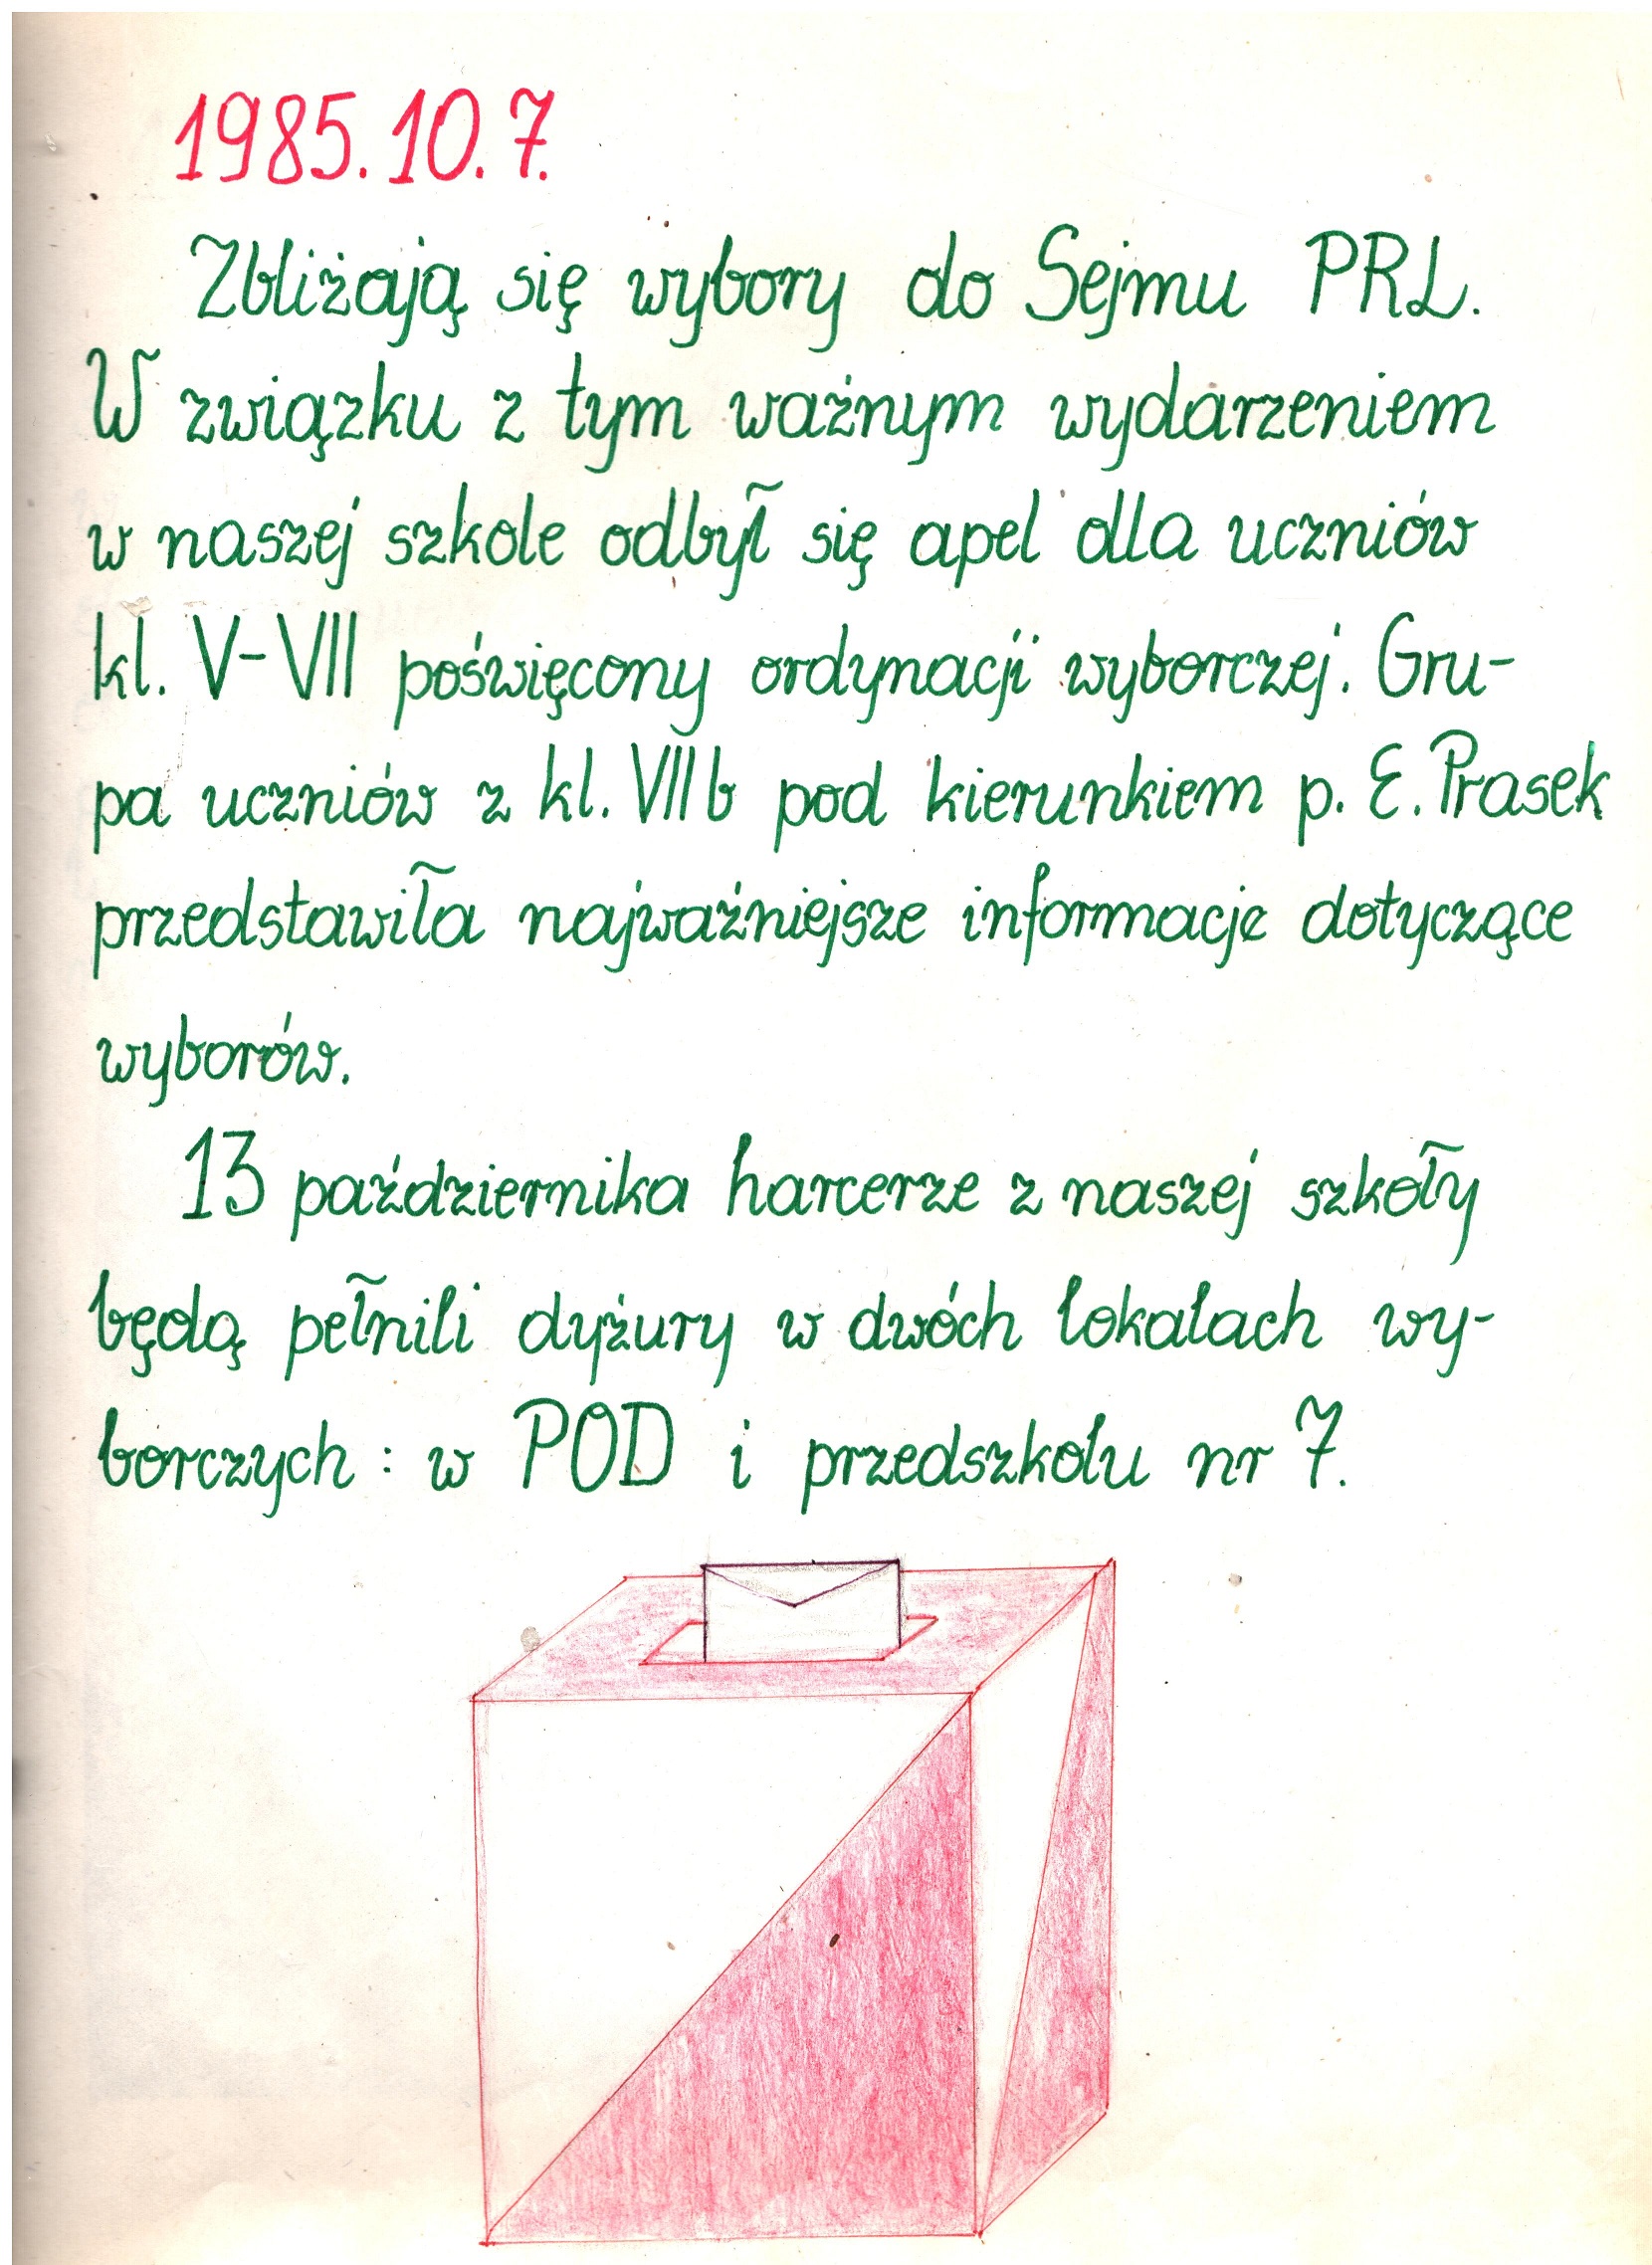 1985.10.7.
Zbliżają się wybory do Sejmu PRL.
W związku z tym ważnym wydarzeniem
w naszej szkole odbył się apel dla uczniów
kl. V-VII poświęcony ordynacji wyborczej. Gru-
pa uczniów z kl. VIIb pod kierunkiem p. E. Prasek
przedstawiła najważniejsze informacje dotyczące
wyborów.
13 października harcerze z naszej szkoły
będą pełnili dyżury w dwóch lokalach wy-
borczych : w POD i przedszkolu nr 7.